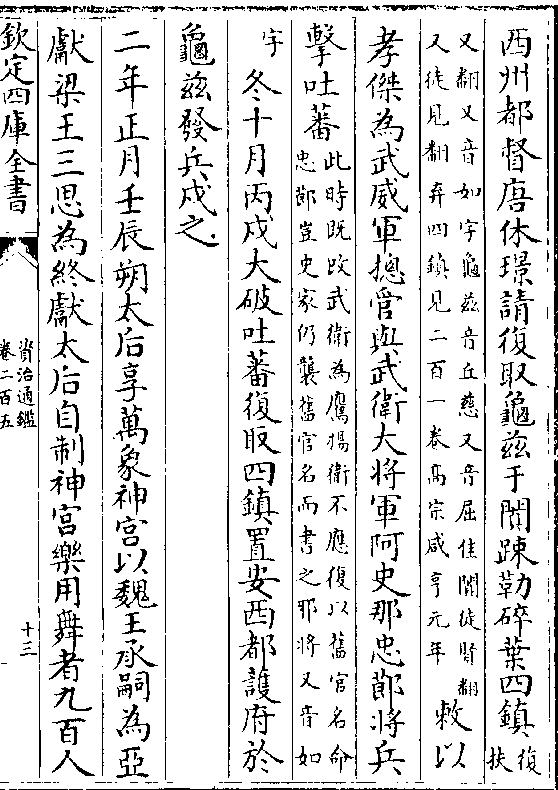 西州都督唐休璟請復取龜兹于闐踈勒碎葉四鎮復扶
又翻又音如字龜兹音丘慈又音屈佳闐徒賢翻
又徒見翻弃四鎮見二百一卷高宗咸亨元年
敕以
孝傑為武威軍摠管與武衛大将軍阿史那忠節将兵
擊吐蕃此時既改武衛為鷹揚衛不應復以舊官名命
忠節豈史家仍襲舊官名而書之耶将又音如
字
冬十月丙戍大破吐蕃復取四鎮置安西都護府於
龜兹發兵戍之
二年正月壬辰朔太后享萬象神宫以魏王承嗣為亞
獻梁王三思為終獻太后自制神宫樂用舞者九百人
欽定四庫全書
資治通鑑
卷二百五
十三